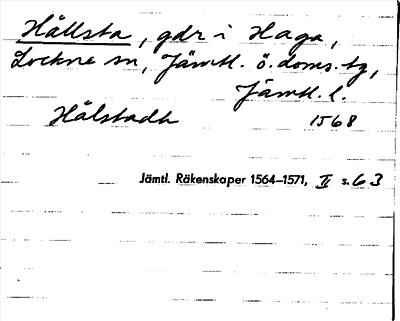 Hållsta, gdr i Haga,
Lockne sn, Jämtl. ö. doms. tg,
Jämtl. l.
Hålstadh 1568
Jämtl. Räkenskaper 1564–1571, II s. 63